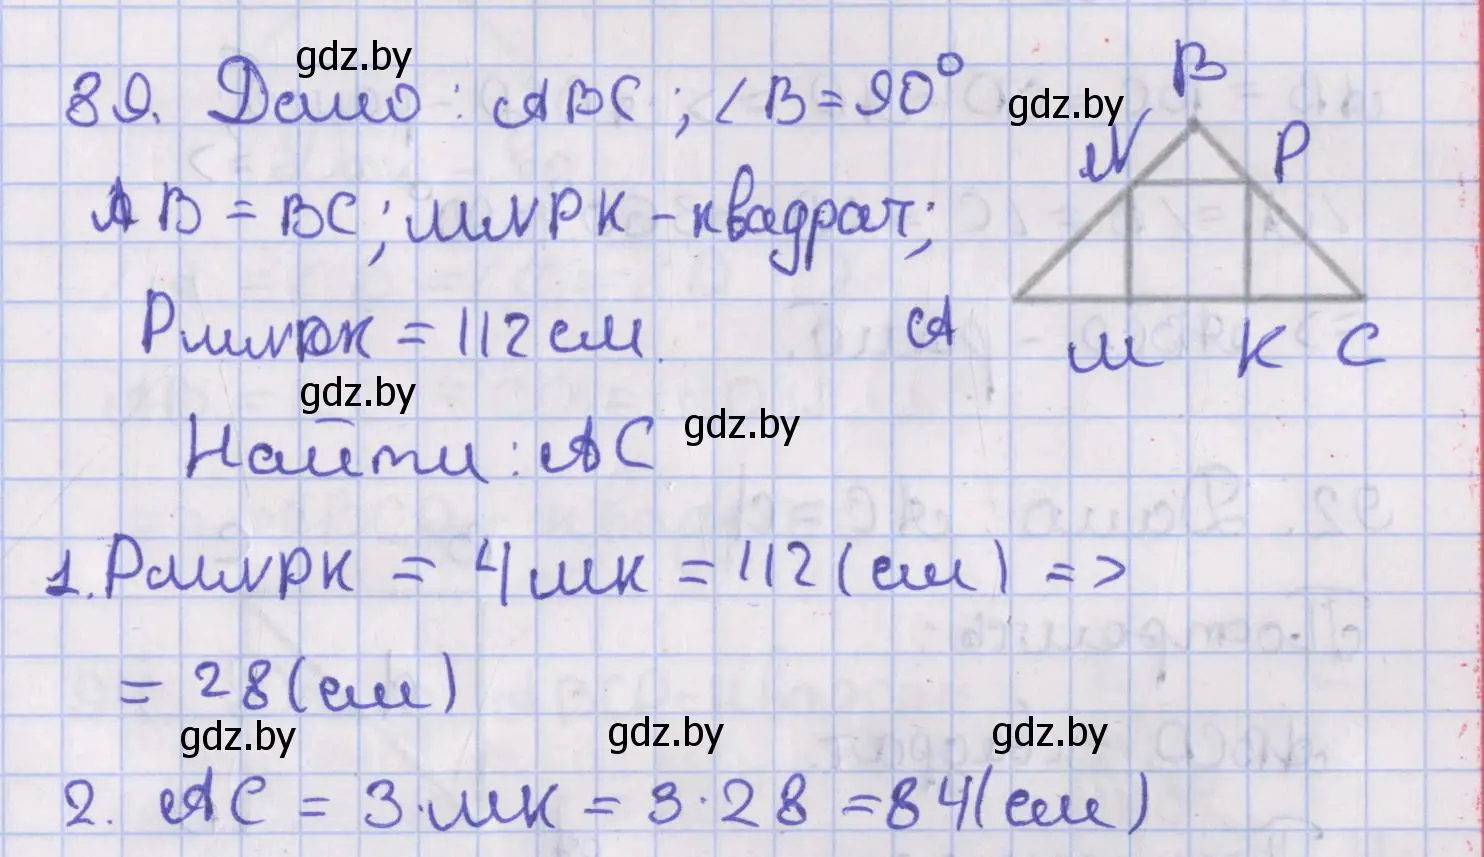 gdz.by
89. Дано: ABC; ∠B=90°
gdz.by
AB = BC; MNPK - квадрат;
PMNPK = 112 см.
gdz.by
Найти: AC
gdz.by
B
N P
A M K C
1. PMNPK = 4MK = 112 (см) =>
= 28 (см)
gdz.by gdz.by gdz.by
2. AC = 3·MK = 3·28 = 84 (см)